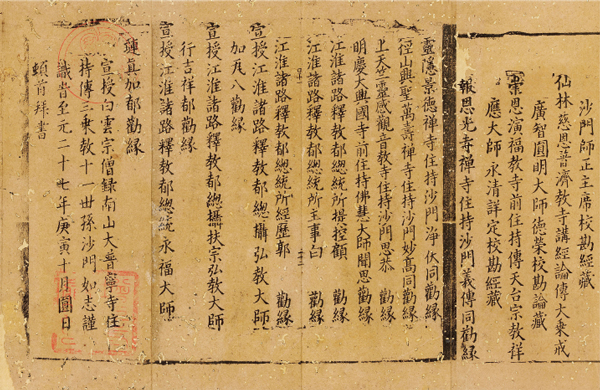 沙門師正主席校勘經藏
仙林慈恩普濟教寺講經論傳大乘戒
廣智圓明大師德榮校勘論藏
崇恩演福教寺前住持傳天台宗教祥
應大師永清詳定校勘經藏
報恩光孝禪寺住持沙門義傳同勸緣
靈隱景德禪寺住持沙門淨伏同勸緣
徑山興聖萬壽禪寺住持沙門妙高同勸緣
上天竺靈感觀音教寺住持沙門思恭 勸緣
明慶大興國寺前住持佛慧大師聞思勸緣
江淮諸路釋教都總統所提控顧 勸緣
江淮諸路釋教都總統所主事白 勸緣
江淮諸路釋教都總統所經歷郭 勸緣
宣授江淮諸路釋教都總攝弘教大師
加瓦八勸緣
宣授江淮諸路釋教都總攝扶宗弘教大師
行吉祥都勸緣
宣授江淮諸路釋教都總統永福大師
璉真加都勸緣
宣授白雲宗僧錄南山大普寧寺住
持傳三乘教十一世孫沙門如志謹
識旹至元二十七年庚寅十月圓日
頓首拜書